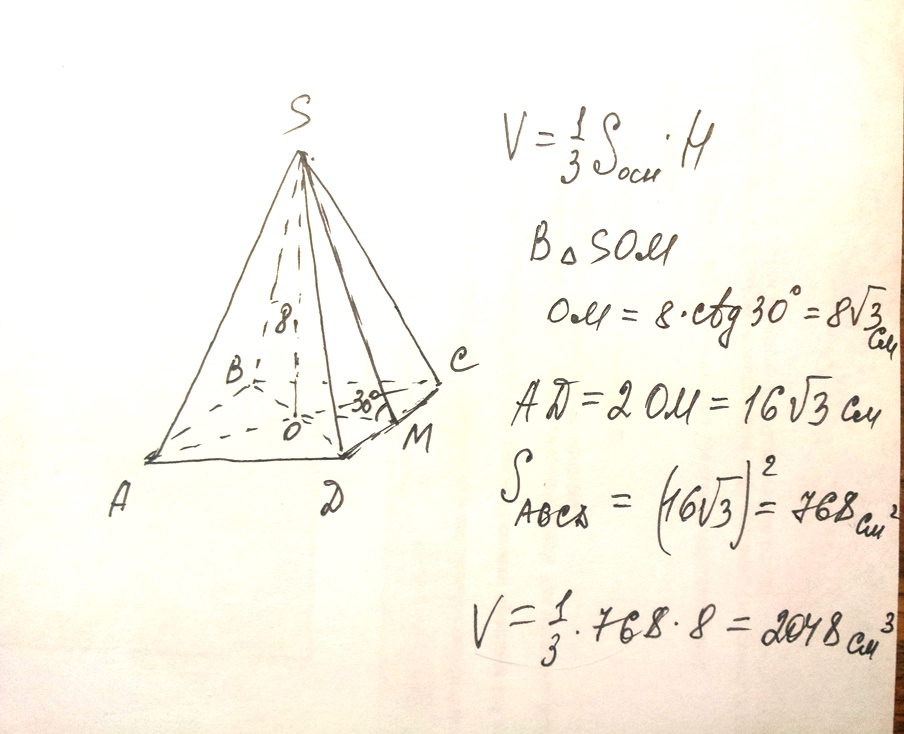 S
8
B
C
30°
O
M
A
D
V = 1/3 Sосн · H
В △ SOM
OM = 8 · ctg 30° = 8√3 см
AD = 2 OM = 16√3 см
S_ABCD = (16√3)² = 768 см²
V = 1/3 · 768 · 8 = 2048 см³